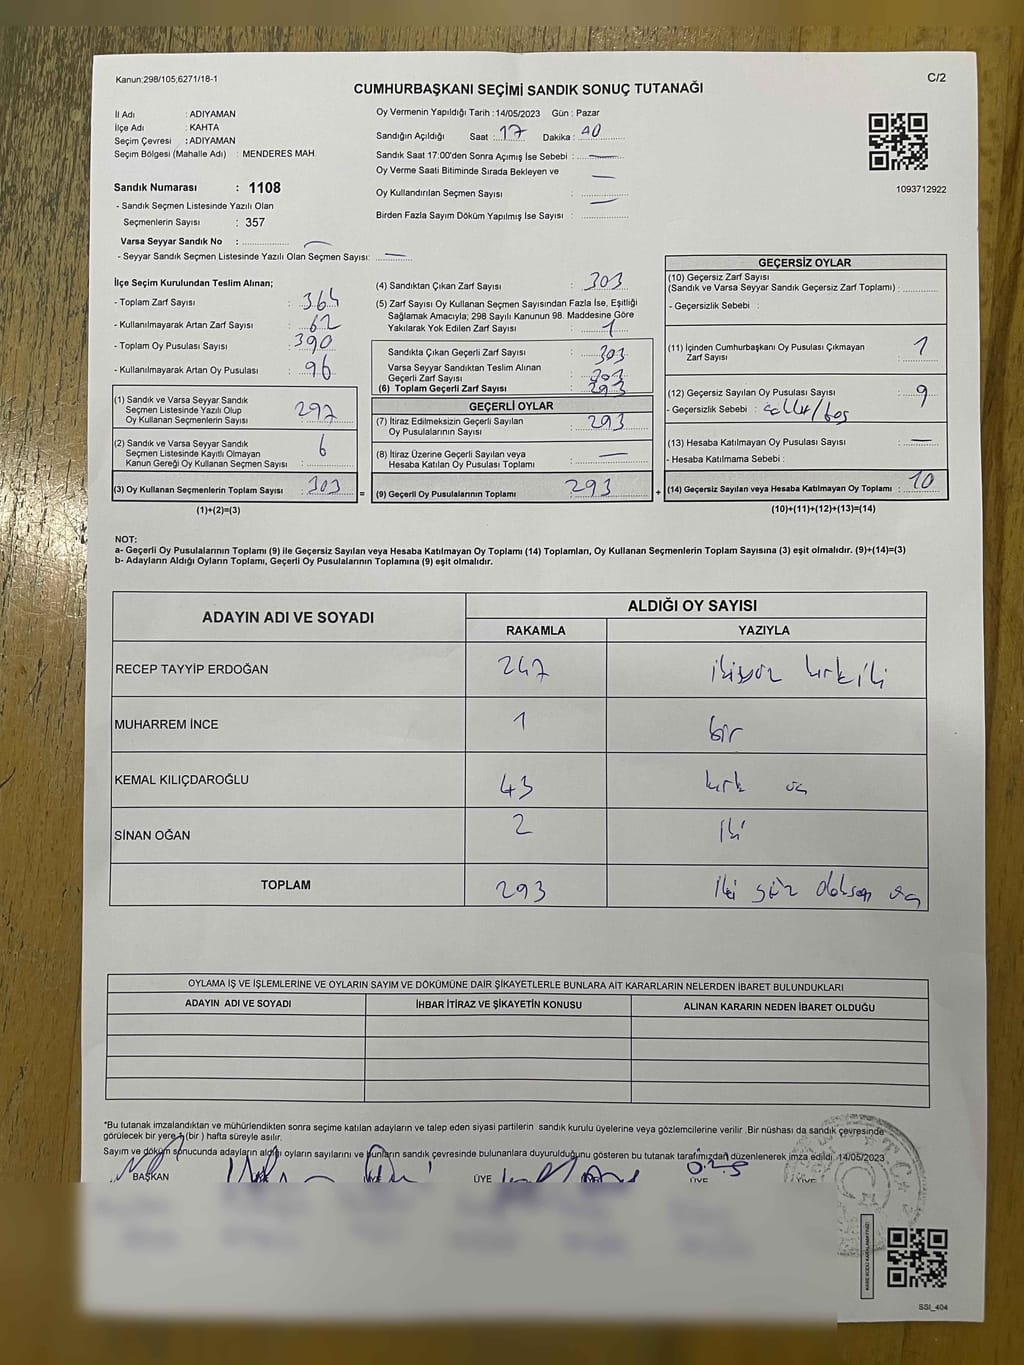 Kanun;298/105,6271/18-1
C/2
CUMHURBAŞKANI SEÇİMİ SANDIK SONUÇ TUTANAĞI
İl Adı : ADIYAMAN
İlçe Adı : KAHTA
Seçim Çevresi : ADIYAMAN
Seçim Bölgesi (Mahalle Adı) : MENDERES MAH.
Sandık Numarası : 1108
- Sandık Seçmen Listesinde Yazılı Olan
Seçmenlerin Sayısı : 357
Varsa Seyyar Sandık No :
- Seyyar Sandık Seçmen Listesinde Yazılı Olan Seçmen Sayısı: —
Oy Vermenin Yapıldığı Tarih : 14/05/2023 Gün : Pazar
Sandığın Açıldığı Saat : 17 Dakika : 40
Sandık Saat 17:00'den Sonra Açımış İse Sebebi : —
Oy Verme Saati Bitiminde Sırada Bekleyen ve —
Oy Kullandırılan Seçmen Sayısı :
Birden Fazla Sayım Döküm Yapılmış İse Sayısı : —
1093712922
İlçe Seçim Kurulundan Teslim Alınan;
- Toplam Zarf Sayısı : 364
- Kullanılmayarak Artan Zarf Sayısı : 62
- Toplam Oy Pusulası Sayısı : 390
- Kullanılmayarak Artan Oy Pusulası : 96
(1) Sandık ve Varsa Seyyar Sandık
Seçmen Listesinde Yazılı Olup
Oy Kullanan Seçmenlerin Sayısı 297
(2) Sandık ve Varsa Seyyar Sandık
Seçmen Listesinde Kayıtlı Olmayan
Kanun Gereği Oy Kullanan Seçmen Sayısı : 6
(3) Oy Kullanan Seçmenlerin Toplam Sayısı : 303 =
(1)+(2)=(3)
(4) Sandıktan Çıkan Zarf Sayısı : 303
(5) Zarf Sayısı Oy Kullanan Seçmen Sayısından Fazla İse, Eşitliği
Sağlamak Amacıyla; 298 Sayılı Kanunun 98. Maddesine Göre
Yakılarak Yok Edilen Zarf Sayısı : 1
Sandıkta Çıkan Geçerli Zarf Sayısı : 303
Varsa Seyyar Sandıktan Teslim Alınan
Geçerli Zarf Sayısı :
(6) Toplam Geçerli Zarf Sayısı : 293
GEÇERLİ OYLAR
(7) İtiraz Edilmeksizin Geçerli Sayılan
Oy Pusulalarının Sayısı : 293
(8) İtiraz Üzerine Geçerli Sayılan veya
Hesaba Katılan Oy Pusulası Toplamı : —
(9) Geçerli Oy Pusulalarının Toplamı : 293 +
GEÇERSİZ OYLAR
(10) Geçersiz Zarf Sayısı
(Sandık ve Varsa Seyyar Sandık Geçersiz Zarf Toplamı) :
- Geçersizlik Sebebi :
(11) İçinden Cumhurbaşkanı Oy Pusulası Çıkmayan
Zarf Sayısı : 1
(12) Geçersiz Sayılan Oy Pusulası Sayısı : 9
- Geçersizlik Sebebi : / boş
(13) Hesaba Katılmayan Oy Pusulası Sayısı : —
- Hesaba Katılmama Sebebi :
(14) Geçersiz Sayılan veya Hesaba Katılmayan Oy Toplamı : 10
(10)+(11)+(12)+(13)=(14)
NOT:
a- Geçerli Oy Pusulalarının Toplamı (9) ile Geçersiz Sayılan veya Hesaba Katılmayan Oy Toplamı (14) Toplamları, Oy Kullanan Seçmenlerin Toplam Sayısına (3) eşit olmalıdır. (9)+(14)=(3)
b- Adayların Aldığı Oyların Toplamı, Geçerli Oy Pusulalarının Toplamına (9) eşit olmalıdır.
ADAYIN ADI VE SOYADI
ALDIĞI OY SAYISI
RAKAMLA YAZIYLA
RECEP TAYYİP ERDOĞAN 247 ikiyüz kırk
MUHARREM İNCE 1 bir
KEMAL KILIÇDAROĞLU 43 kırk üç
SİNAN OĞAN 2 iki
TOPLAM 293 iki yüz doksan üç
OYLAMA İŞ VE İŞLEMLERİNE VE OYLARIN SAYIM VE DÖKÜMÜNE DAİR ŞİKAYETLERLE BUNLARA AİT KARARLARIN NELERDEN İBARET BULUNDUKLARI
ADAYIN ADI VE SOYADI İHBAR İTİRAZ VE ŞİKAYETİN KONUSU ALINAN KARARIN NEDEN İBARET OLDUĞU
*Bu tutanak imzalandıktan ve mühürlendikten sonra seçime katılan adayların ve talep eden siyasi partilerin sandık kurulu üyelerine veya gözlemcilerine verilir .Bir nüshası da sandık çevresinde
görülecek bir yere 1 (bir ) hafta süreyle asılır.
Sayım ve döküm sonucunda adayların aldığı oyların sayılarını ve bunların sandık çevresinde bulunanlara duyurulduğunu gösteren bu tutanak tarafımızdan düzenlenerek imza edildi. 14/05/2023
BAŞKAN ÜYE ÜYE
SSI_404